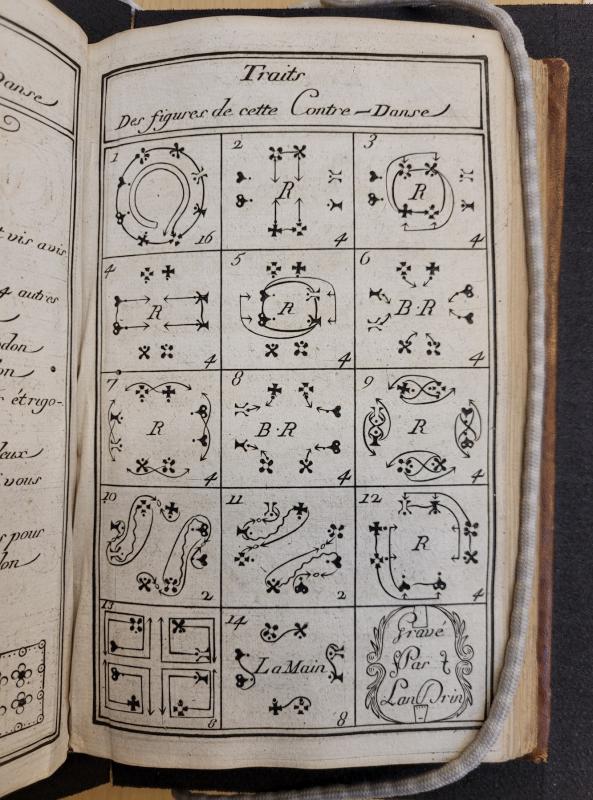 Danse
t vis avis
4 autres
don
on
s étrigo-
deux
vous
s pour
don
Traits
Des figures de cette Contre-Danse
1 16
2 R 4
3 R 4
4 R 4
5 R 4
6 B.R 4
7 R 4
8 B.R 4
9 R 4
10 2
11 2
12 R 4
13 8
14 La Main 8
Gravé
Par
Landrin